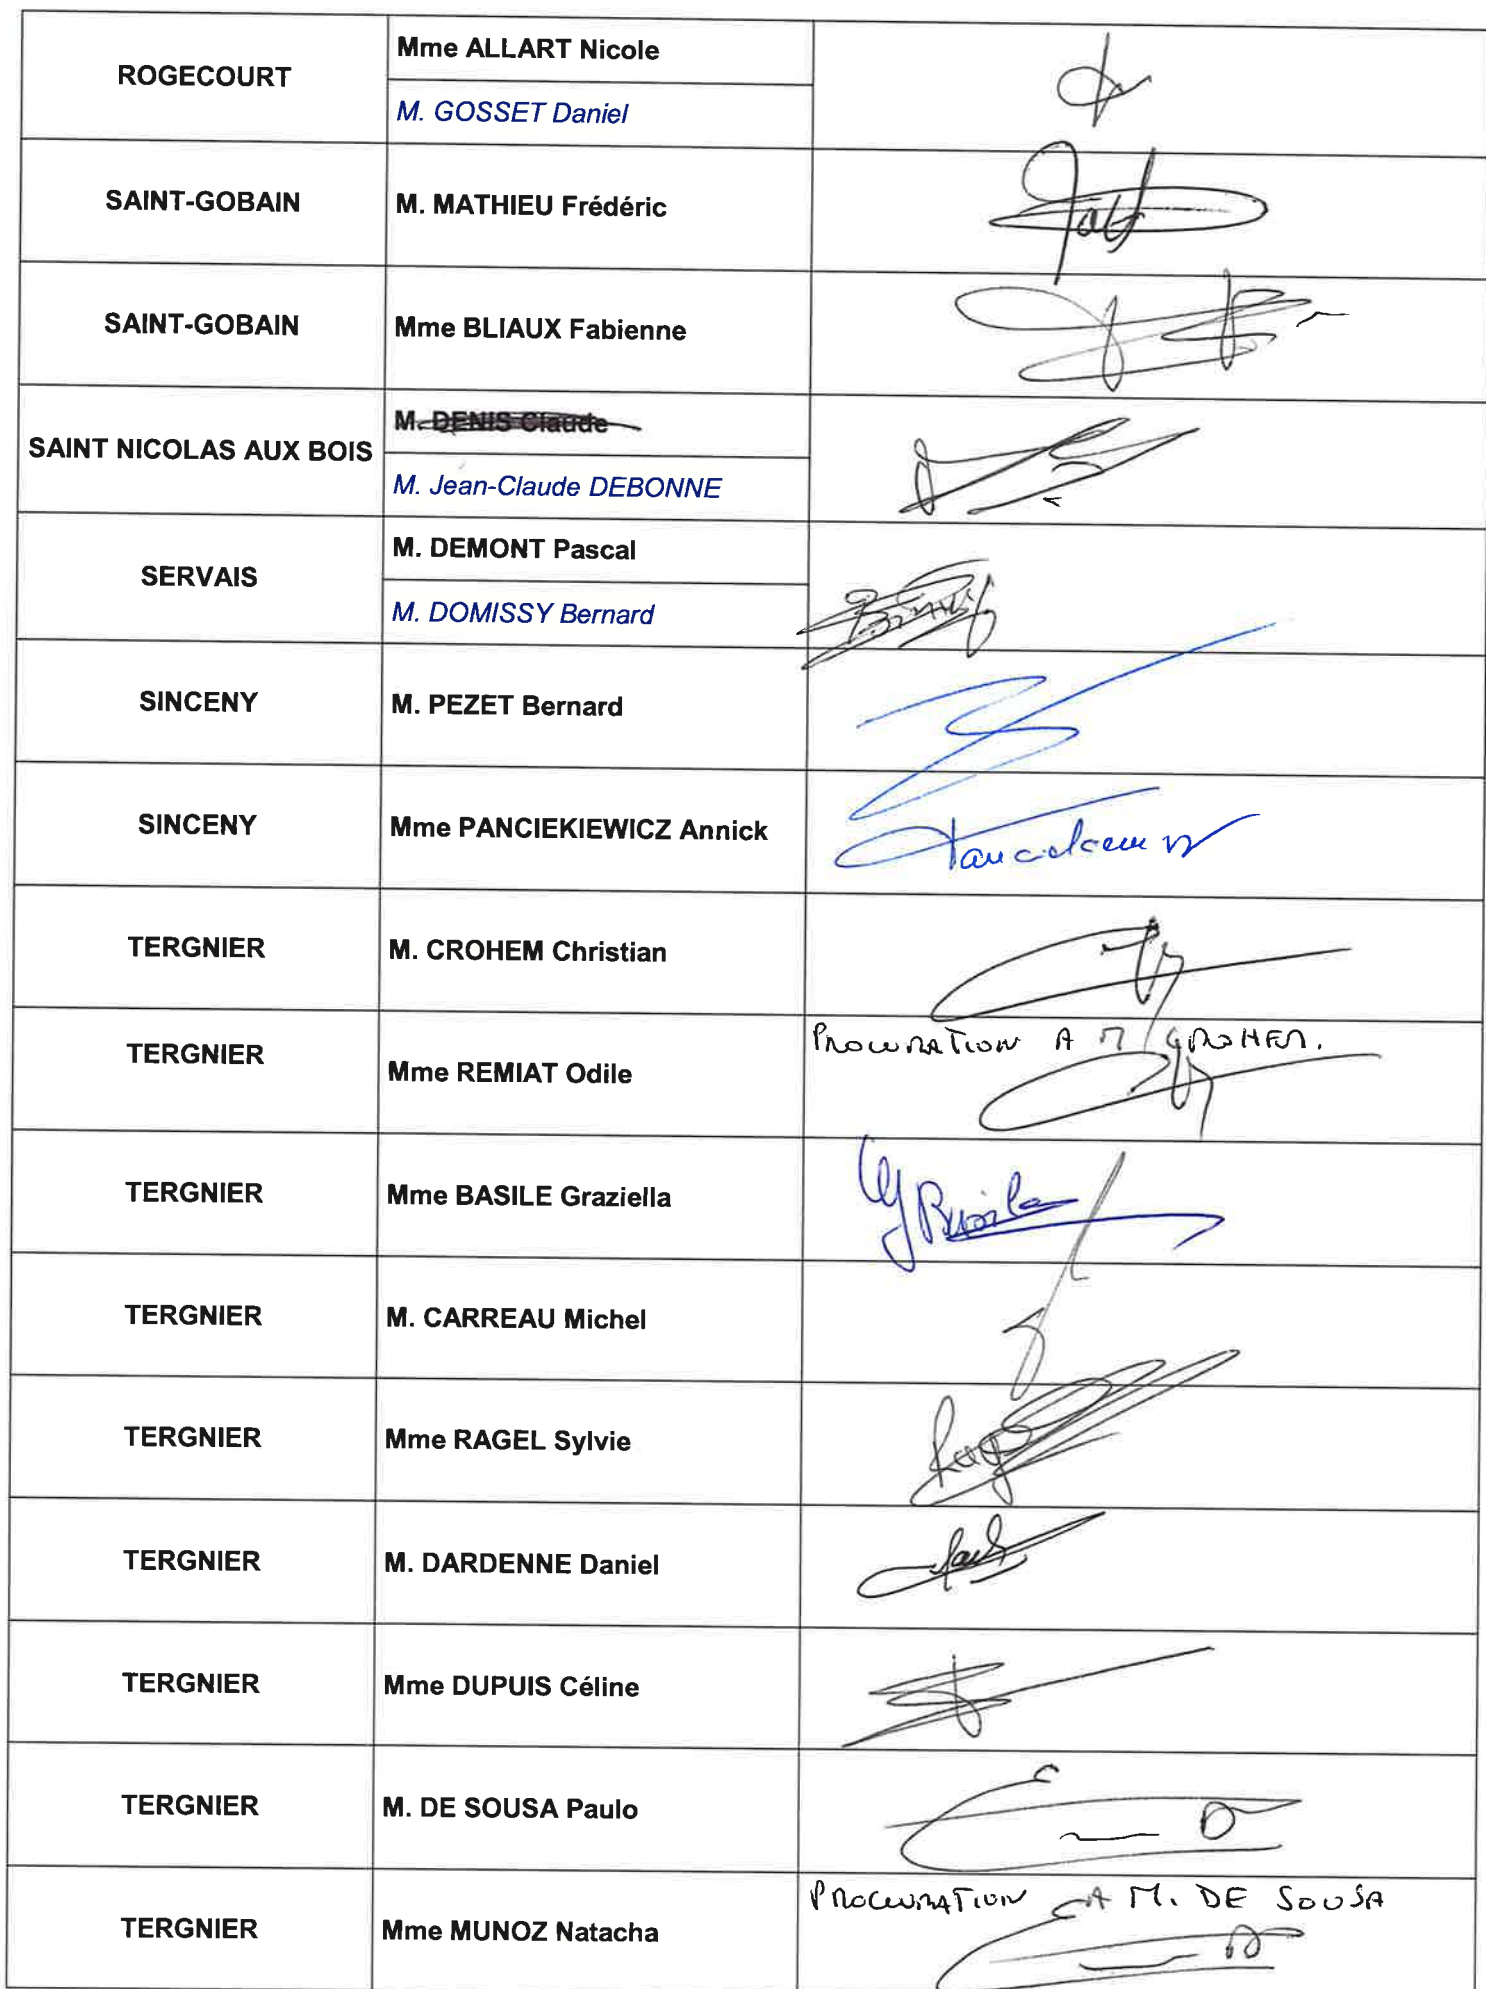 ROGECOURT
Mme ALLART Nicole
M. GOSSET Daniel
SAINT-GOBAIN
M. MATHIEU Frédéric
SAINT-GOBAIN
Mme BLIAUX Fabienne
SAINT NICOLAS AUX BOIS
M. DENIS Claude
M. Jean-Claude DEBONNE
SERVAIS
M. DEMONT Pascal
M. DOMISSY Bernard
SINCENY
M. PEZET Bernard
SINCENY
Mme PANCIEKIEWICZ Annick
TERGNIER
M. CROHEM Christian
TERGNIER
Mme REMIAT Odile
PROCURATION A M CROHEM.
TERGNIER
Mme BASILE Graziella
TERGNIER
M. CARREAU Michel
TERGNIER
Mme RAGEL Sylvie
TERGNIER
M. DARDENNE Daniel
TERGNIER
Mme DUPUIS Céline
TERGNIER
M. DE SOUSA Paulo
TERGNIER
Mme MUNOZ Natacha
PROCURATION A M. DE SOUSA